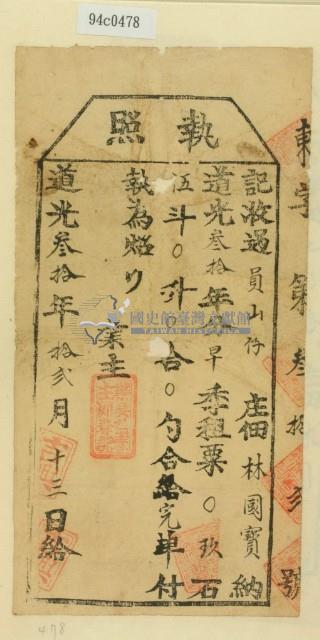 94c0478
執照
東字第叁拾弍號
記收過員山仔庄佃林國寶納
道光叁拾年早季租粟〇玖石
伍斗〇升合〇勺合給完單付
執為炤
業主
道光叁拾年拾弍月十三日給
國史館臺灣文獻館
TAIWAN HISTORICA
478